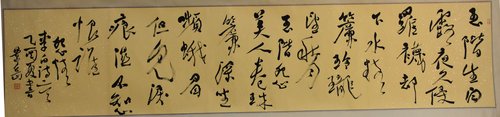 玉階生白
露夜久侵
羅襪却
下水精
簾玲瓏
望秋月
玉階怨
美人卷珠
簾深坐
顰蛾眉
但見淚
痕濕不知心
恨誰
怨情
李白詩二首